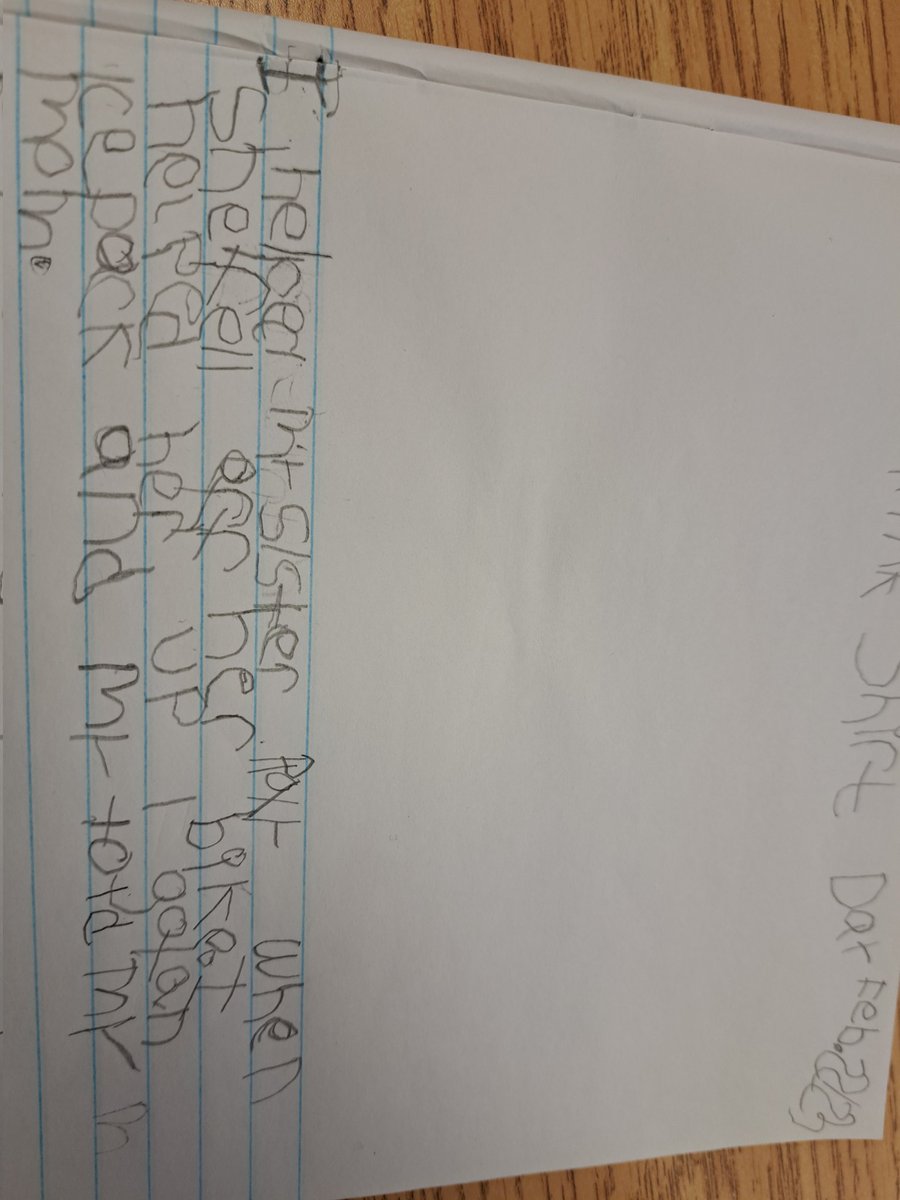 Shirt Day Feb. 22/23
I helped my sister Ary when
she fell off her bike I
helped her up I got an
ice pack and my told my
mom.